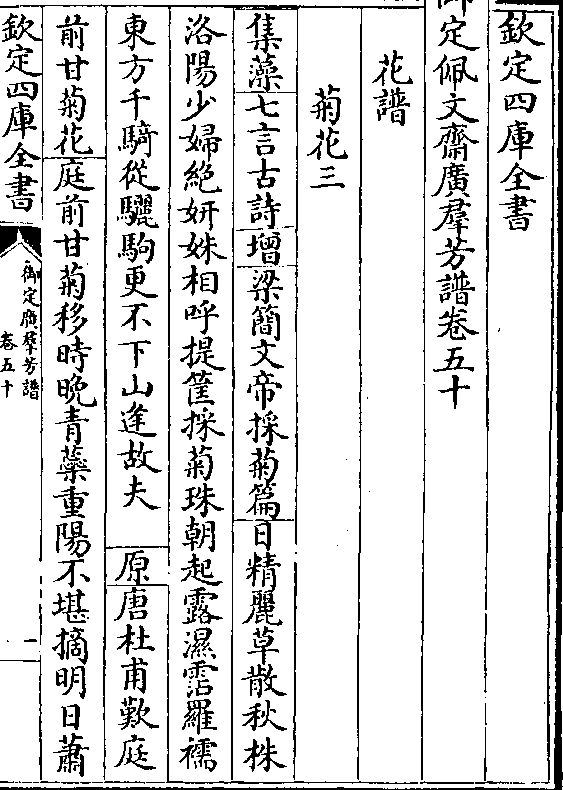 欽定四庫全書
御定佩文齋廣羣芳譜卷五十
花譜
菊花三
集藻七言古詩增梁簡文帝採菊篇日精麗草散秋株
洛陽少婦絶妍姝相呼提筐採菊珠朝起露濕霑羅襦
東方千騎從驪駒更不下山逢故夫　原唐杜甫歎庭
前甘菊花庭前甘菊移時晚青蘂重陽不堪摘明日蕭
欽定四庫全書
御定廣羣芳譜
卷五十
一